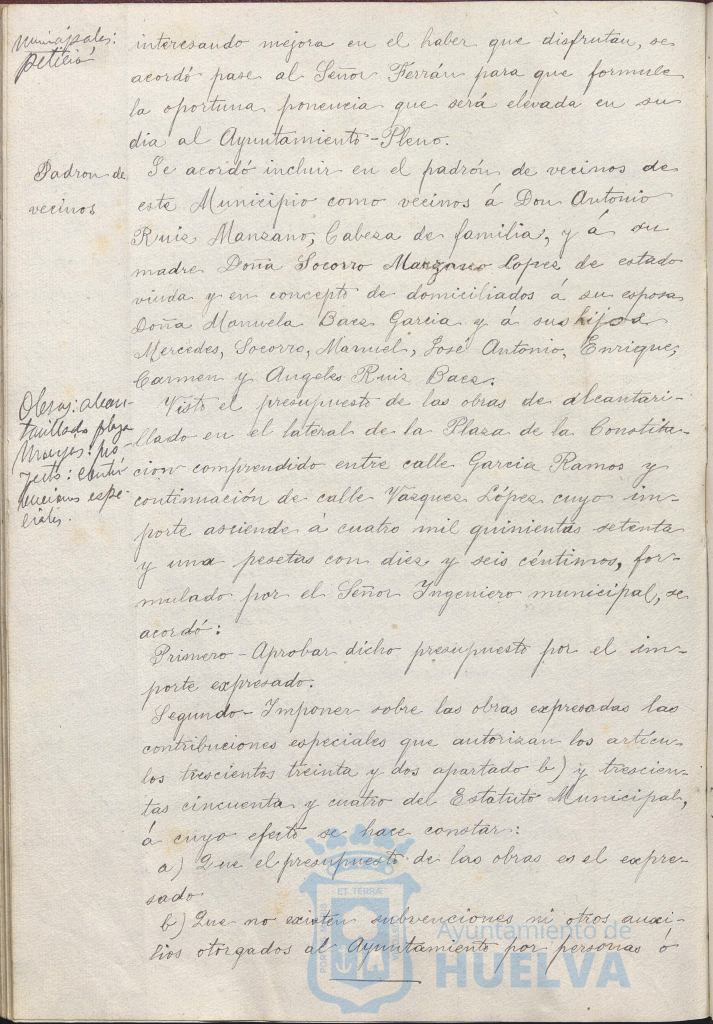 municipales:
petició
interesando mejora en el haber que disfrutan, se
acordó pase al Señor Ferrán para que formule
la oportuna ponencia que será elevada en su
dia al Ayuntamiento-Pleno.
Padron de
vecinos
Se acordó incluir en el padrón de vecinos de
este Municipio como vecinos á Don Antonio
Ruiz Manzano, Cabeza de familia, y á su
madre Doña Socorro Manzano Lopez de estado
viuda y en concepto de domiciliados á su esposa
Doña Manuela Baez Garcia y á sus hijos
Mercedes, Socorro, Manuel, José Antonio, Enrique,
Carmen y Angeles Ruiz Baez.
Obras: alcan-
tarillado plaza
Monjas: pro-
yecto: contri
buciones espe-
ciales.
Visto el presupuesto de las obras de alcantari-
llado en el lateral de la Plaza de la Constitu-
cion comprendido entre calle Garcia Ramos y
continuación de calle Vazquez López cuyo im-
porte asciende á cuatro mil quinientas setenta
y una pesetas con diez y seis céntimos, for-
mulado por el Señor Ingeniero municipal, se
acordó:
Primero - Aprobar dicho presupuesto por el im-
porte expresado.
Segundo - Imponer sobre las obras expresadas las
contribuciones especiales que autorizan los artícu-
los trescientos treinta y dos apartado b) y trescien-
tas cincuenta y cuatro del Estatuto Municipal,
á cuyo efecto se hace constar:
a) Que el presupuesto de las obras es el expre-
sado
b) Que no existen subvenciones ni otros auxi-
lios otorgados al Ayuntamiento por personas ó
ET TERRÆ
Ayuntamiento de
HUELVA